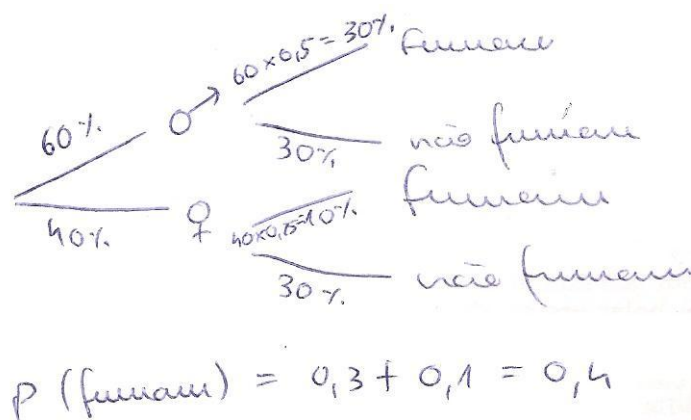 60×0,5=30%. fumam
60% ♂
30% não fumam
40% ♀ 40×0,25=10% fumam
30% não fumam
P (fumam) = 0,3 + 0,1 = 0,4